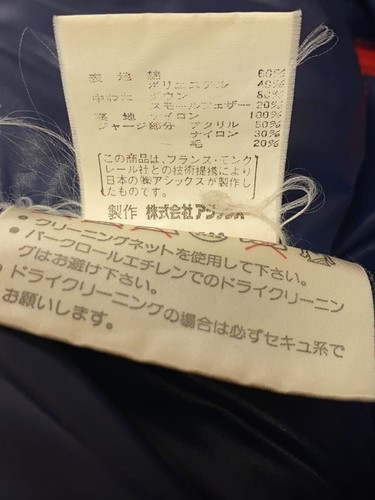 表地 綿 60%
ポリエステル 40%
中わた ダウン 80%
スモールフェザー 20%
裏地 ナイロン 100%
ジャージ部分 アクリル 50%
ナイロン 30%
毛 20%
この商品は、フランス・モンク
レール社との技術提携により
日本の(株)アシックスが製作し
たものです。
製作 株式会社アシックス
• クリーニングネットを使用して下さい。
• パークロールエチレンでのドライクリーニン
グはお避け下さい。
• ドライクリーニングの場合は必ずセキュ系で
お願いします。